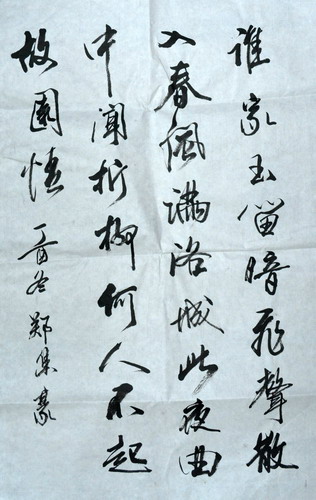 誰家玉笛暗飛聲散
入春風滿洛城此夜曲
中聞折柳何人不起
故園情 丁酉冬鄭集豪